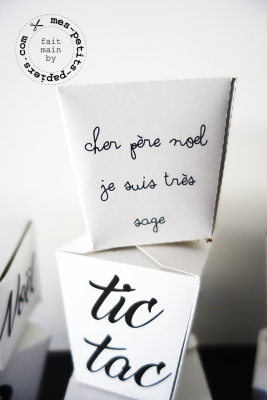 mes-petits-papiers.com
fait
main
by
cher père noel
je suis très
sage
tic
tac